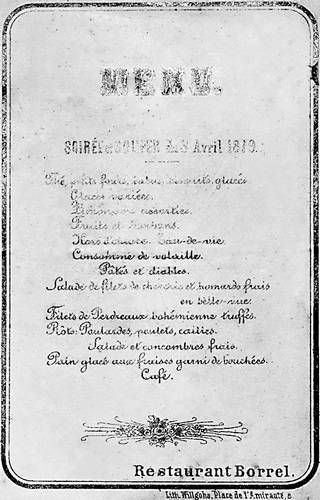 MENU.
SOIRÉE et SOUPER du 3 Avril 1879.
Thé, petits fours, biscuits, glacés
Glaces variées.
assorties.
Fruits et bonbons.
Hors d'œuvre. Eau-de-vie.
Consommé de volaille.
Pâtés et diables.
Salade de filets de et homards frais
en belle-vue.
Filets de Perdreaux bohémienne truffés.
Rôts: Poulardes, poulets, cailles.
Salade et concombres frais.
Pain glacé aux fraises garni de bouchées.
Café.
Restaurant Borrel.
Lith. Willgohs, Place de l'Amirauté,